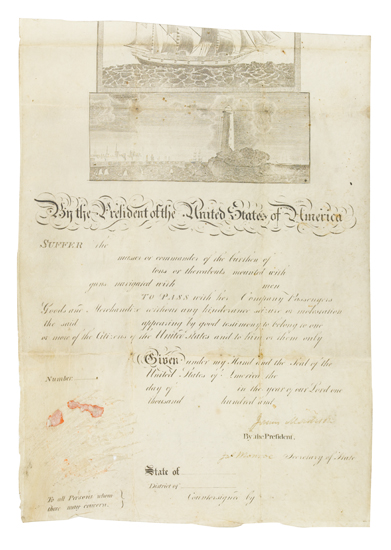 By the President of the United States of America
SUFFER the
master or commander of the burthen of
tons or thereabouts mounted with
guns navigated with men
TO PASS with her Company Passengers
Goods and Merchandize without any hinderance seizure or molestation
the said appearing by good testimony to belong to one
or more of the Citizens of the United States and to him or them only
Given under my Hand and the Seal of the
United States of America the
Number
day of in the year of our Lord one
thousand hundred and
James Madison
By the President.
Jas Monroe Secretary of State
State of
District of
Countersigned by
To all Persons whom
these may concern.